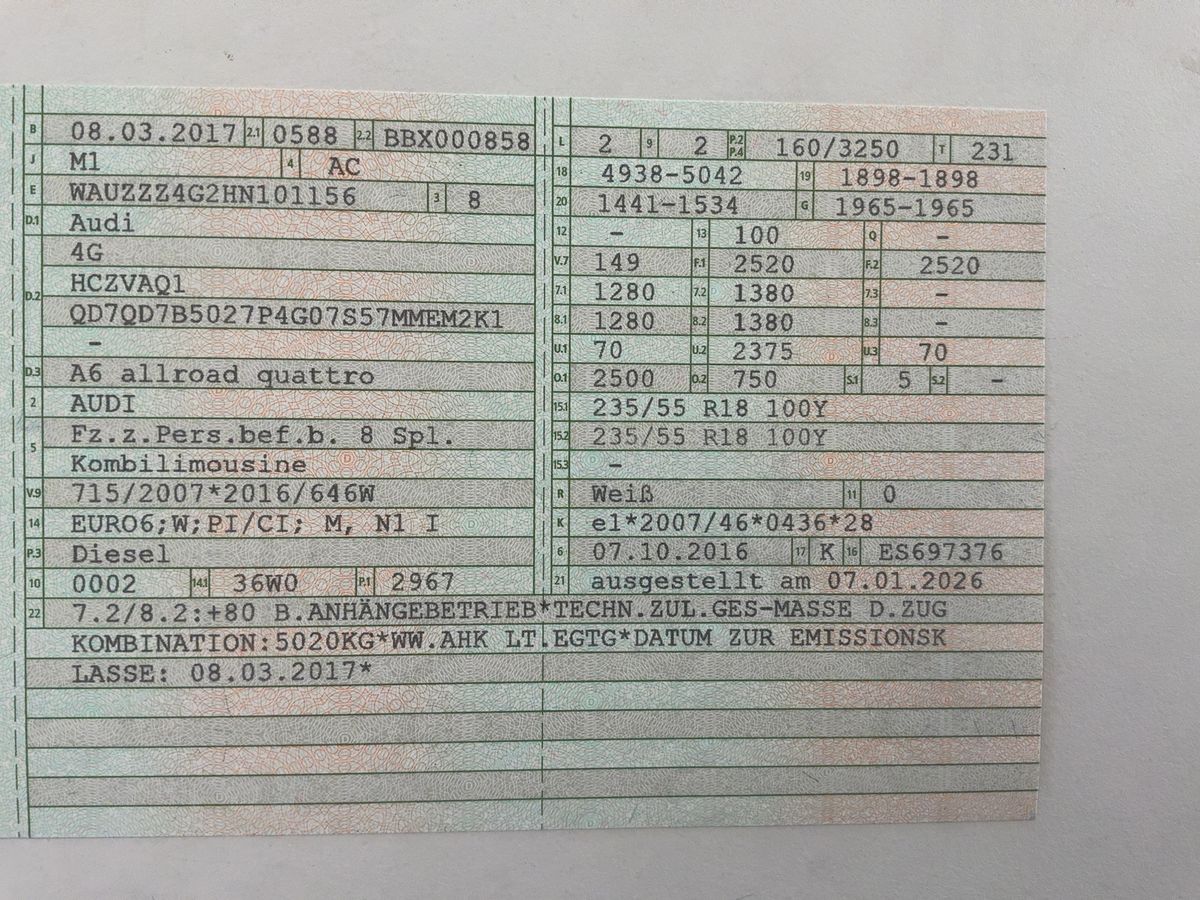 B 08.03.2017 2.1 0588 2.2 BBX000858
J M1 4 AC
E WAUZZZ4G2HN101156 3 8
D.1 Audi
D.2 4G
HCZVAQ1
QD7QD7B5027P4G07S57MMEM2K1
-
D.3 A6 allroad quattro
2 AUDI
5 Fz.z.Pers.bef.b. 8 Spl.
Kombilimousine
V.9 715/2007*2016/646W
14 EURO6;W;PI/CI; M, N1 I
P.3 Diesel
10 0002 14.1 36W0 P.1 2967
L 2 9 2 P.2 P.4 160/3250 T 231
18 4938-5042 19 1898-1898
20 1441-1534 G 1965-1965
12 - 13 100 Q -
V.7 149 F.1 2520 F.2 2520
7.1 1280 7.2 1380 7.3 -
8.1 1280 8.2 1380 8.3 -
U.1 70 U.2 2375 U.3 70
O.1 2500 O.2 750 S.1 5 S.2 -
15.1 235/55 R18 100Y
15.2 235/55 R18 100Y
15.3 -
R Weiß 11 0
K e1*2007/46*0436*28
6 07.10.2016 17 K 16 ES697376
21 ausgestellt am 07.01.2026
22 7.2/8.2:+80 B.ANHÄNGEBETRIEB*TECHN.ZUL.GES-MASSE D.ZUG
KOMBINATION:5020KG*WW.AHK LT.EGTG*DATUM ZUR EMISSIONSK
LASSE: 08.03.2017*